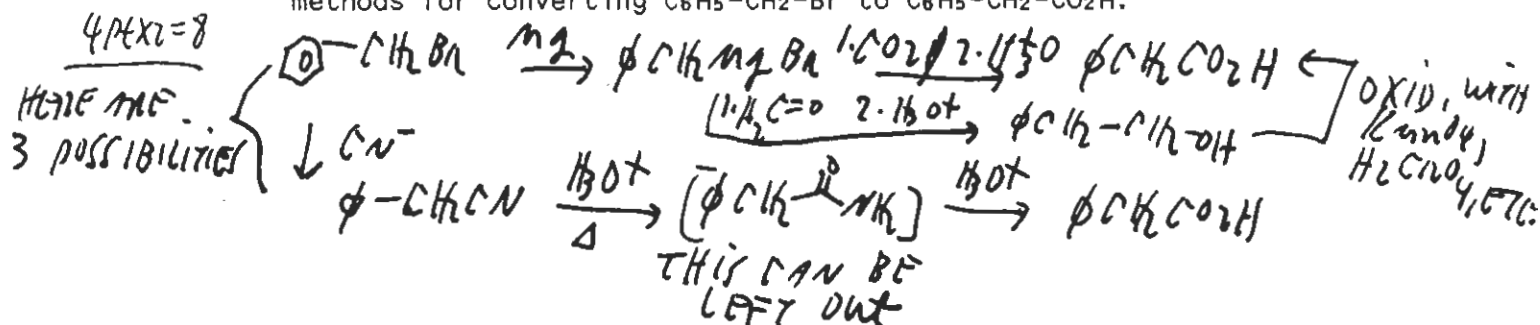 methods for converting C6H5-CH2-Br to C6H5-CH2-CO2H.
4ptx2=8
HERE ARE
3 POSSIBILITIES
CH2Br Mg → φCH2MgBr 1.CO2 / 2.H3+O → φCH2CO2H
1.H2C=O 2.H3O+ → φCH2-CH2-OH
OXID, WITH
KMnO4,
H2CrO4, ETC.
↓ CN-
φ-CH2CN H3O+ Δ → [φCH2 O NH2] H3O+ → φCH2CO2H
THIS CAN BE
LEFT OUT